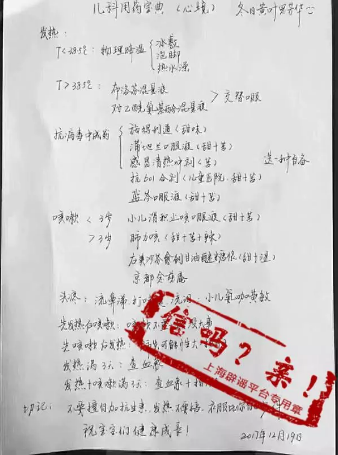 儿科用药宝典（心镜） 冬日黄叶
发热：
T<38.5℃：物理降温 冰敷
泡脚
热水澡
T>38.5℃：布洛芬混悬液
对乙酰氨基酚混悬液 > 交替口服
抗病毒中成药 （甜味）
蒲地兰口服液（甜+苦）
感冒清热冲剂（苦） 选一种自备
抗加合剂（儿童医院，甜+苦）
蓝芩口服液（甜+苦）
咳嗽 <3岁 小儿清积止咳口服液（甜+苦）
>3岁 肺力咳（甜+苦+辣）
右美沙芬愈创甘油醚糖浆（甜+
京都念慈庵
流鼻涕 小儿氨咖黄敏
先发热后咳嗽：
先咳嗽后发热：
发热满3天：查血常
发热+咳嗽满3天：查血常+
切记：不要擅自加抗生素，发热不要捂，衣服比你
祝宝宝们健康成长！
2017年12月19日
信吗？亲！
上海辟谣平台专用章